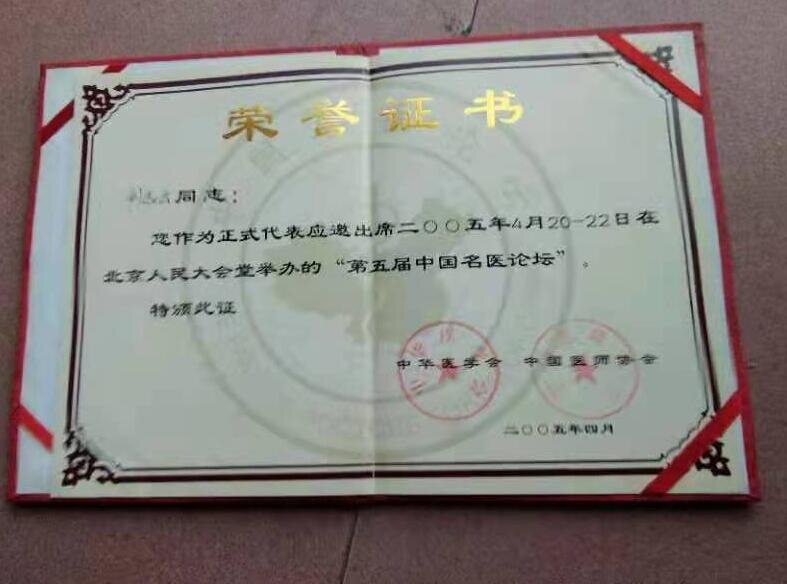 荣誉证书
同志：
您作为正式代表应邀出席二〇〇五年4月20-22日在
北京人民大会堂举办的“第五届中国名医论坛”。
特颁此证
中华医学会 中国医师协会
二〇〇五年四月